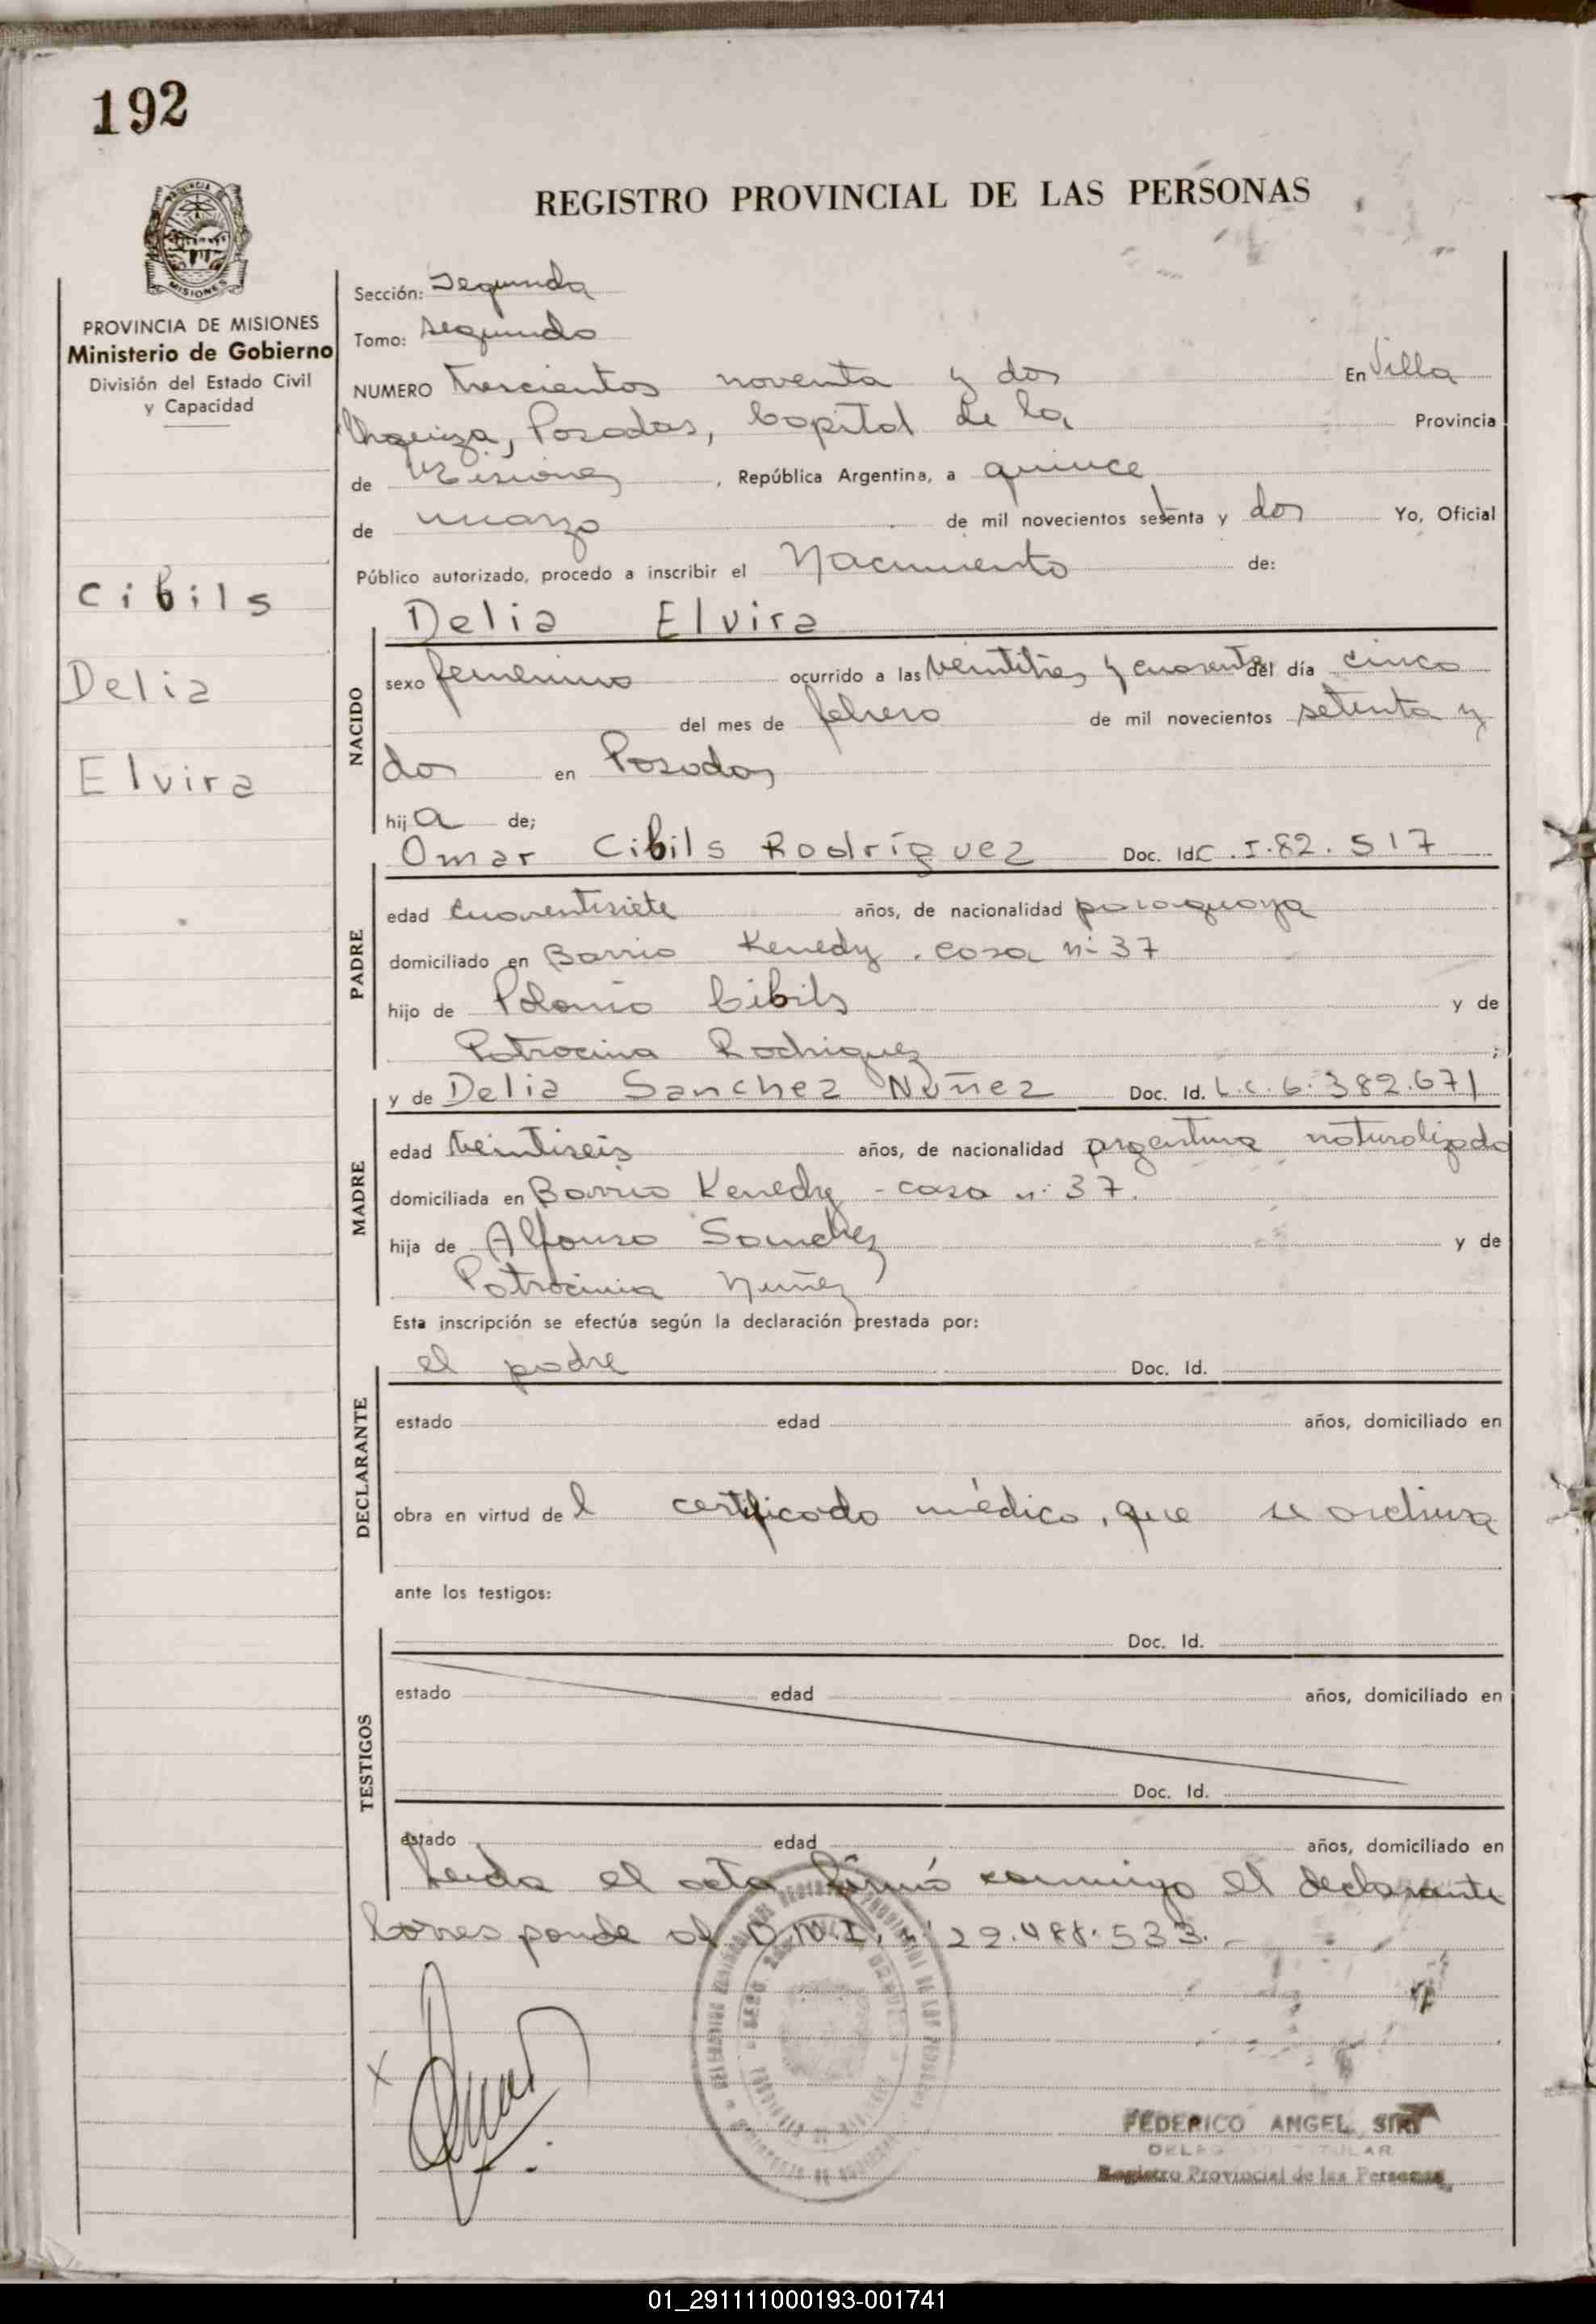 192
REGISTRO PROVINCIAL DE LAS PERSONAS
PROVINCIA DE
MISIONES
PROVINCIA DE MISIONES
Ministerio de Gobierno
División del Estado Civil
y Capacidad
Cibils
Delia
Elvira
Sección: Segunda
Tomo: Segundo
NUMERO trescientos noventa y dos En Villa
Urquiza, Posadas, Capital de la Provincia
de Misiones, República Argentina, a quince
de marzo de mil novecientos setenta y dos Yo, Oficial
Público autorizado, procedo a inscribir el Nacimiento de:
Delia Elvira
NACIDO
sexo femenino ocurrido a las veintitres y cuarenta del día cinco
del mes de febrero de mil novecientos setenta y
dos en Posadas
hija de;
Omar Cibils Rodríguez Doc. Id. C.I.82.517
PADRE
edad cuarentisiete años, de nacionalidad paraguaya
domiciliado en Barrio Kenedy. casa nº 37
hijo de Polonio Cibils y de
Patrocina Rodriguez;
y de Delia Sanchez Núñez Doc. Id. L.C. 6.382.671
MADRE
edad veintiseis años, de nacionalidad argentina naturalizada
domiciliada en Barrio Kenedy - casa nº 37.
hija de Alfonso Sanchez y de
Patrocinia Nuñez
Esta inscripción se efectúa según la declaración prestada por:
el padre Doc. Id.
DECLARANTE
estado edad años, domiciliado en
obra en virtud del certificado médico, que se archiva
ante los testigos:
Doc. Id.
TESTIGOS
estado edad años, domiciliado en
Doc. Id.
estado edad años, domiciliado en
Leida el acta firmó conmigo el declarante
Corresponde al D.N.I. nº 22.488.533.-
X
FEDERICO ANGEL SIRI
TITULAR
Registro Provincial de las Personas
01_291111000193-001741